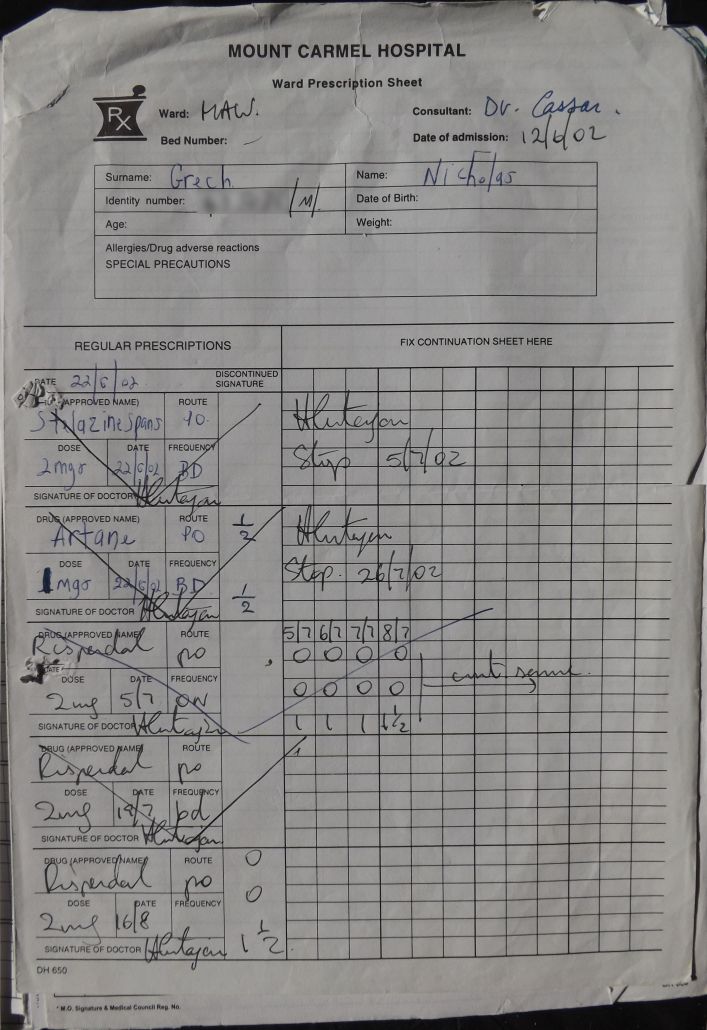 MOUNT CARMEL HOSPITAL
Ward Prescription Sheet
Rx
Ward: MAW.
Consultant: Dr. Cassar.
Bed Number: –
Date of admission: 12/6/02
Surname: Grech
Name: Nicholas
Identity number: /M/.
Date of Birth:
Age:
Weight:
Allergies/Drug adverse reactions
SPECIAL PRECAUTIONS
REGULAR PRESCRIPTIONS
FIX CONTINUATION SHEET HERE
DATE 22/6/02.
DISCONTINUED SIGNATURE
(APPROVED NAME) ROUTE
Stelazine spans PO.
DOSE DATE FREQUENCY
2mgs 22/6/02 BD
Stop 5/7/02
SIGNATURE OF DOCTOR
DRUG (APPROVED NAME) ROUTE
Artane PO 1/2
DOSE DATE FREQUENCY
1mgs 22/6/02 BD 1/2
Stop. 26/7/02
SIGNATURE OF DOCTOR
DRUG (APPROVED NAME) ROUTE
5/7 6/7 7/7 8/7
Risperdal po
0 0 0 0
DOSE DATE FREQUENCY
2mg 5/7 ON
0 0 0 0
SIGNATURE OF DOCTOR
1 1 1 1 1/2
DRUG (APPROVED NAME) ROUTE
Risperdal po
DOSE DATE FREQUENCY
2mg 19/7 bd
SIGNATURE OF DOCTOR
DRUG (APPROVED NAME) ROUTE 0
Risperdal po
DOSE DATE FREQUENCY 0
2mg 16/8
SIGNATURE OF DOCTOR 1 1/2
DH 650
* M.O. Signature & Medical Council Reg. No.